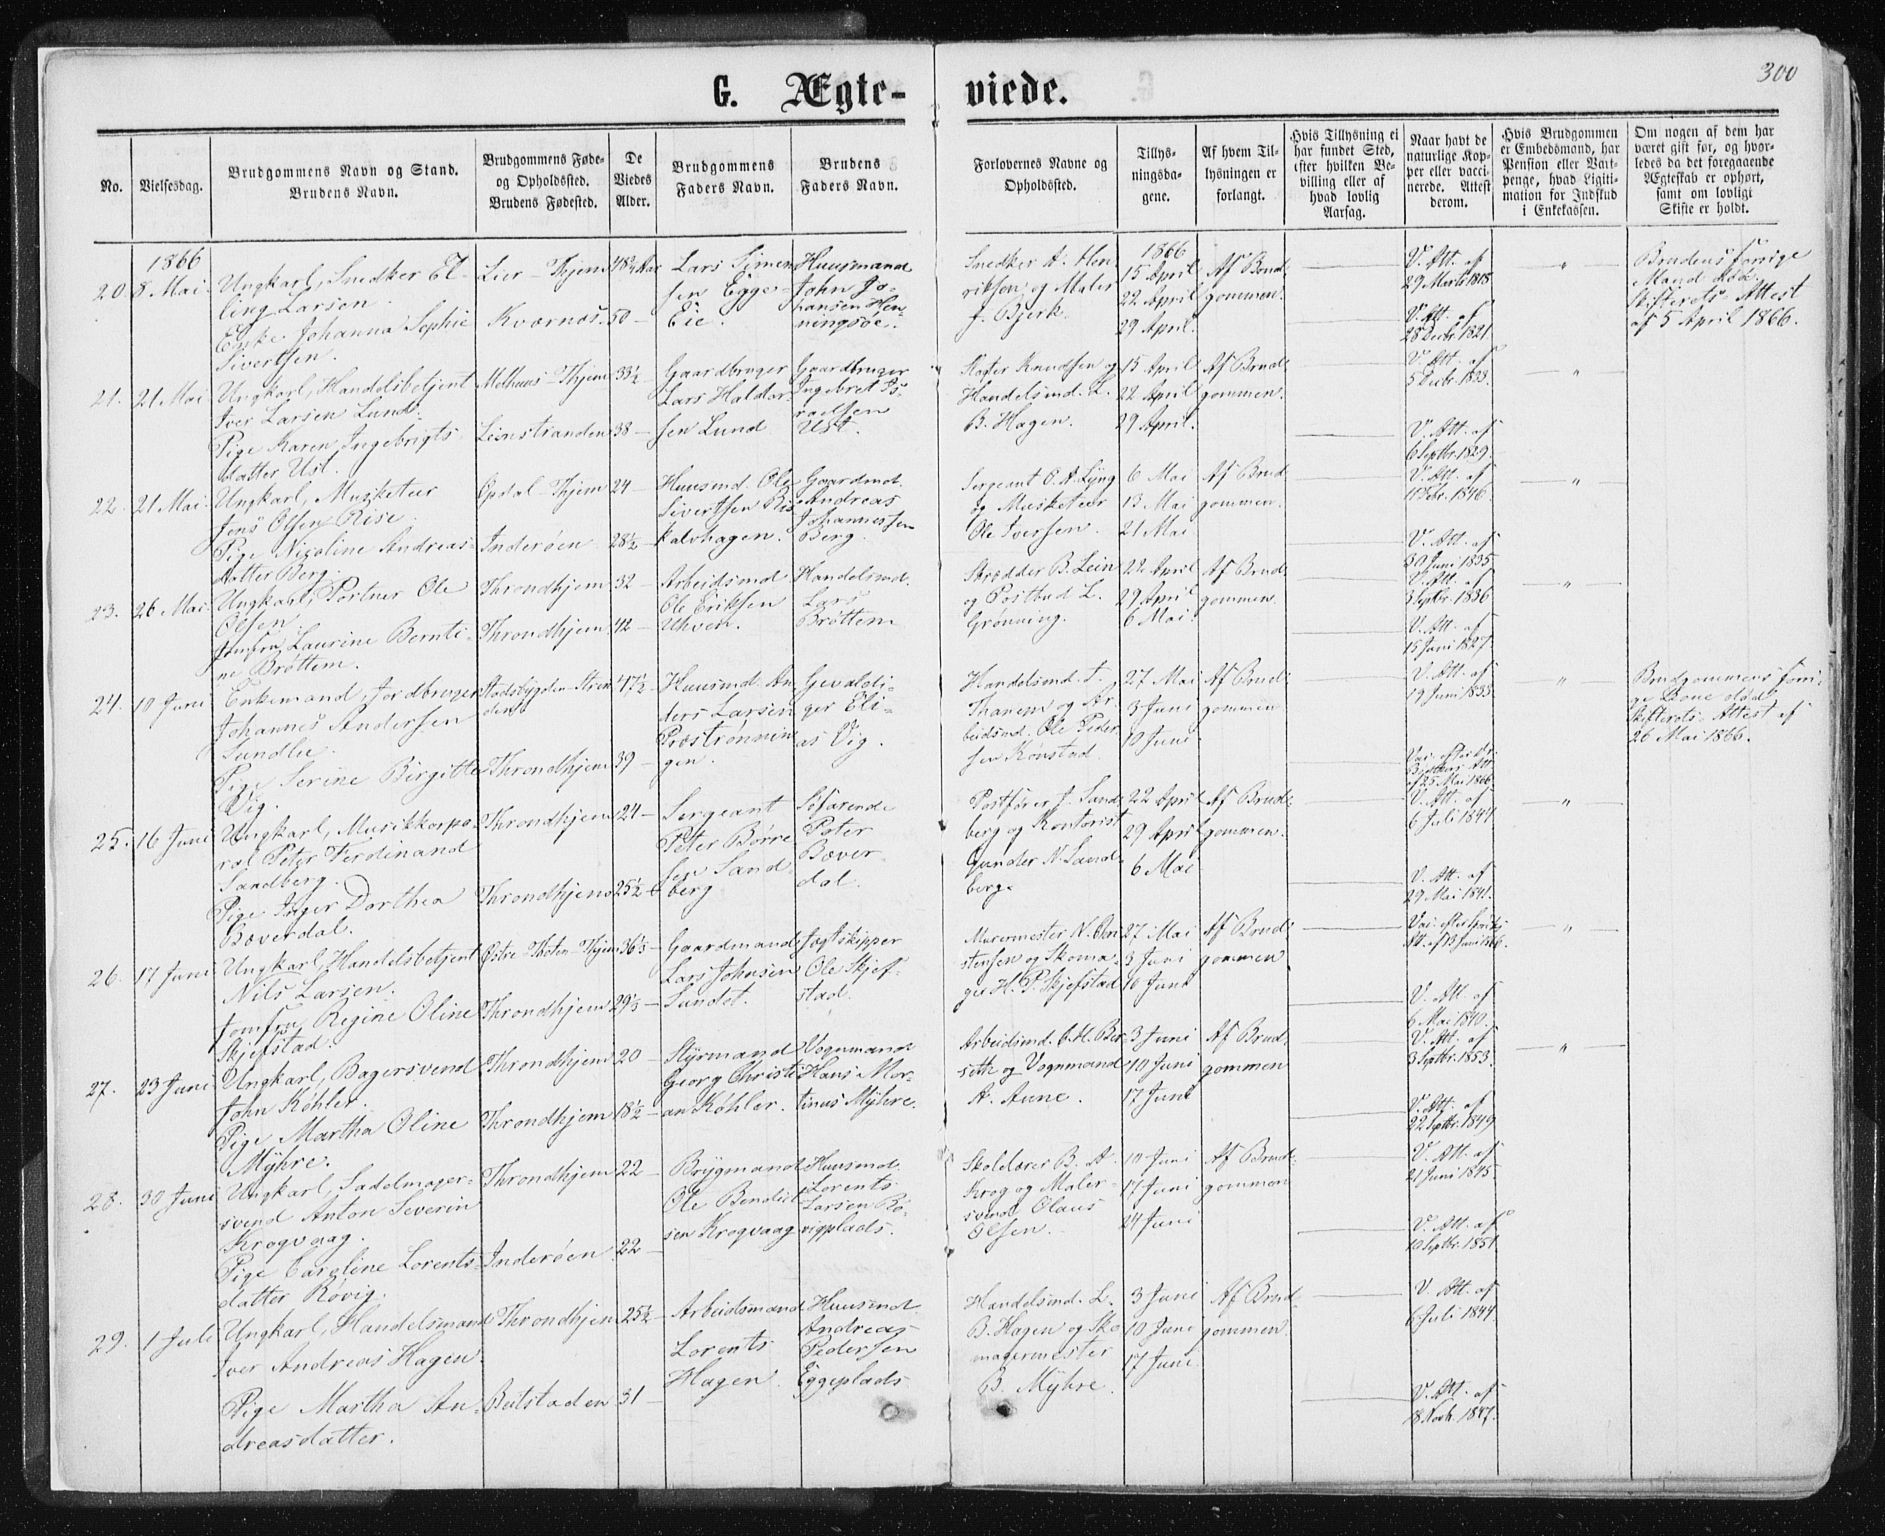 300
G. Ægte-
viede.
No.
Vielsesdag.
Brudgommens Navn og Stand.
Brudens Navn.
Brudgommens Føde-
og Opholdsted.
Brudens Fødested.
De
Viedes
Alder.
Brudgommens
Faders Navn.
Brudens
Faders Navn.
Forlovernes Navne og
Opholdsted.
Tillys-
ningsda-
gene.
Af hvem Til-
lysningen er
forlangt.
Hvis Tillysning ei
har fundet Sted,
efter hvilken Be-
villing eller af
hvad lovlig
Aarsag.
Naar havt de
naturlige Kop-
per eller vacci-
nerede. Attest
derom.
Hvis Brudgommen
er Embedsmand, har
Pension eller Vart-
penge, hvad Ligiti-
mation for Indskud
i Enkekassen.
Om nogen af dem har
været gift før, og hvor-
ledes da det foregaaende
Ægteskab er ophørt,
samt om lovligt
Skifte er holdt.
1866
20. 8 Mai.
Ungkarl, Snedker El-
ling Larsen.
Enke Johanna Sophie
Sivertsen.
Lier - Thjem
Kvernæs.
48¼ Aar
50 -
Lars Simen-
sen Egge-
Eie.
Huusmand
John Jo-
hansen Hen-
ningsöe.
Snedker A. Hen-
riksen, og Maler
J. Bjerk.
1866
15 April
22 April
29 April.
Af Brud-
gommen.
V. Att. af
29 Marts 1818
V. Att. af
28 Decbr. 1821.
"
Brudens forrige
Mand död.
Skifterets Attest
af 5 April 1866.
21. 21 Mai
Ungkarl, Handelsbetjent
Iver Larsen Lund.
Pige Karen Ingebrigts-
datter Ust.
Melhuus - Thjem
Leinstranden
33½
38 -
Gaardbruger
Lars Haldor-
sen Lund
Gaardbruger
Ingebret Is-
raelsen
Ust.
Knudsen og
Handelsmd. L.
B. Hagen.
15 April
22 April
29 April.
Af Brud-
gommen.
V. Att. af
5 Decbr. 1833.
V. Att. af
6 Septbr. 1829.
"
22. 21 Mai.
Ungkarl, Musketeer
Jens Olsen Rise.
Pige Nicoline Andreas-
datter Berg.
Opdal - Thjem
Inderöen
24 -
28½
Huusmd. Ole
Sivertsen Ris-
kalvhagen.
Gaardmd.
Andreas
Johannessen
Berg.
Sergeant O. A. Lyng
og Musketeer
Ole Iversen.
6 Mai
13 Mai
21 Mai
Af Brud-
gommen.
V. Att. af
11 Febr. 1846.
V. Att. af
30 Juni 1835
"
23. 26 Mai.
Ungkarl, Portner Ole
Olsen.
Jomfru Laurine Bernti-
ne Bröttem.
Throndhjem
Throndhjem
32 -
42 -
Arbeidsmd.
Ole Eriksen
Uhven.
Handelsmd.
Lars
Bröttem
Skrædder B. Lein
og Postbud L.
Grönning.
22 April
29 April
6 Mai.
Af Brud-
gommen.
V. Att. af
3 Septbr. 1836
V. Att. af
15 Juni 1827.
"
24. 10 Juni
Enkemand, Jordbruger
Johannes Andersen
Sundlie.
Pige Serine Birgitte
Vig.
Stadsbygden - Stran-
den
Throndhjem
47½
39 -
Huusmd. An-
ders Larsen
Præströnnin-
gen.
Gevaldi-
ger Eli-
as Vig.
Handelsmd. T.
Thanem og Ar-
beidsmd. Ole Peder-
sen Rönstad.
27 Mai
3 Juni
10 Juni
Af Brud-
gommen
V. Att. af
19 Juni 1835
af 25 Mai 1866
"
Brudgommens forri-
ge Kone död.
Skifterets Attest af
26 Mai 1866.
25. 16 Juni
Ungkarl, Musikkorpo-
ral Peter Ferdinand
Sandberg.
Pige Inger Dorthea
Boverdal.
Throndhjem
Throndhjem
24 -
25½
Sergeant
Peter Börre-
sen Sand-
berg
Söfarende
Peter
Bover-
dal.
Postförer J. Sand-
berg og Kontorist
Gunder N. Sand-
berg.
22 April
29 April
6 Mai
Af Brud-
gommen.
V. Att. af
6 Juli 1844
V. Att. af
29 Mai 1841.
"
26. 17 Juni
Ungkarl, Handelsbetjent
Nils Larsen.
Jomfru Regine Oline
Skjefstad.
Östre Thoten - Thjem
Throndhjem
36⅓ -
29⅓ -
Gaardmand
Lars Johnsen
Sundet.
Jagtskipper
Ole Skjef-
stad.
Murermester N. Chri-
stensen og Skoma-
ger H. P. Skjefstad
27 Mai
3 Juni
10 Juni
Af Brud-
gommen
V. Att. af
6 Mai 1840.
"
27. 23 Juni
Ungkarl, Bagersvend
John Köhler.
Pige Martha Oline
Myhre.
Throndhjem
Throndhjem
20 -
18½ -
Styrmand
Georg Christi-
an Köhler.
Vognmand
Hans Mor-
tinus Myhre.
Arbeidsmd. O. H. Ber-
sette og Vognmand
A. Aune.
3 Juni
10 Juni
17 Juni
Af Brud-
gommen
V. Att. af
3 Septbr. 1853.
V. Att. af
22 Septbr. 1849
"
28. 30 Juni
Ungkarl, Sadelmager-
svend Anton Severin
Krogvaag.
Pige Caroline Lorents-
datter Rövig.
Throndhjem
Inderöen
22 -
22 -
Brygmand
Ole Bendict-
sen Krogvaag
Huusmd.
Lorents
Larsen Rö-
vigplads.
Skolelærer B. A.
Krog og Maler-
svend Olaus
Olsen.
10 Juni
17 Juni
24 Juni
Af Brud-
gommen
V. Att. af
21 Juni 1845.
V. Att. af
10 Septbr. 1851.
29. 1 Juli
Ungkarl, Handelsmand
Iver Andreas Hagen.
Pige Martha An-
dreasdatter.
Throndhjem
Beitstaden
25½ -
31 -
Arbeidsmand
Lorents
Hagen.
Huusmd.
Andreas
Pedersen
Eggeplads
Handelsmd. L.
B. Hagen og Sko-
magermester
B. Myhre.
3 Juni
10 Juni
17 Juni
Af Brud-
gommen.
V. Att. af
6 Juli 1844
V. Att. af
18 Novb. 1847.